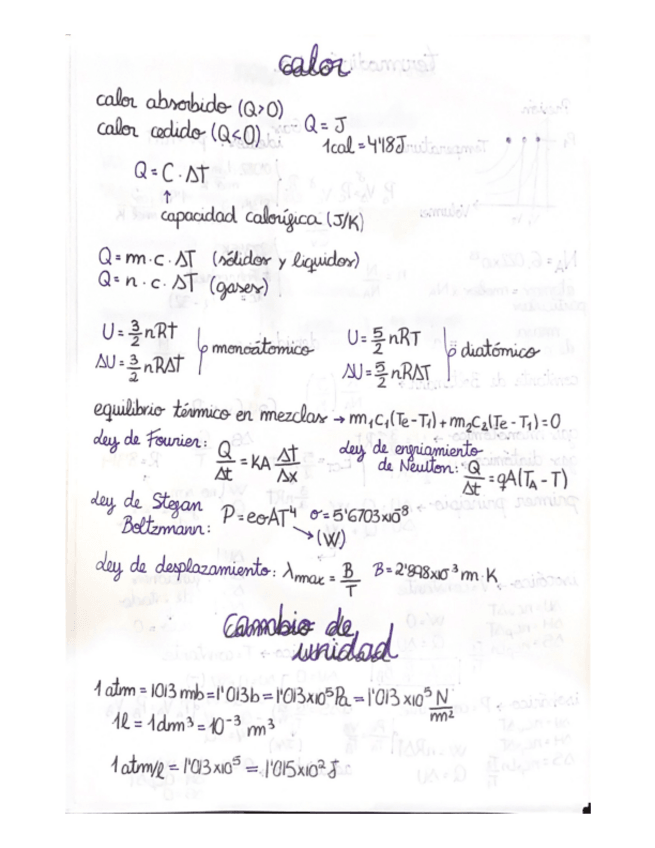 calor
calor absorbido (Q>0)
calor cedido (Q≤0)
Q = J
1cal = 4'18J
Q = C · ΔT
↑
capacidad calorífica (J/K)
Q = m · c · ΔT (sólidos y líquidos)
Q = n · c · ΔT (gases)
U = 3/2 nRt
ΔU = 3/2 nRΔT
monoátomico
U = 5/2 nRT
ΔU = 5/2 nRΔT
diatómico
equilibrio térmico en mezclas → m₁C₁(Te - T₁) + m₂C₂(Te - T₁) = 0
Ley de Fourier: Q/Δt = KA Δt/Δx
Ley de engriamiento
de Newton: Q/Δt = qA(TA - T)
Ley de Stegan
Boltzmann:
P = eσAT⁴ σ = 5'6703x10⁸
→ (W)
Ley de desplazamiento: λmax = B/T B = 2'898x10⁻³ m·K
Cambio de
unidad
1 atm = 1013 mb = 1'013b = 1'013x10⁵ Pa = 1'013 x10⁵ N/m²
1l = 1dm³ = 10⁻³ m³
1 atm/l = 1'013 x10⁵ = 1'015x10² J